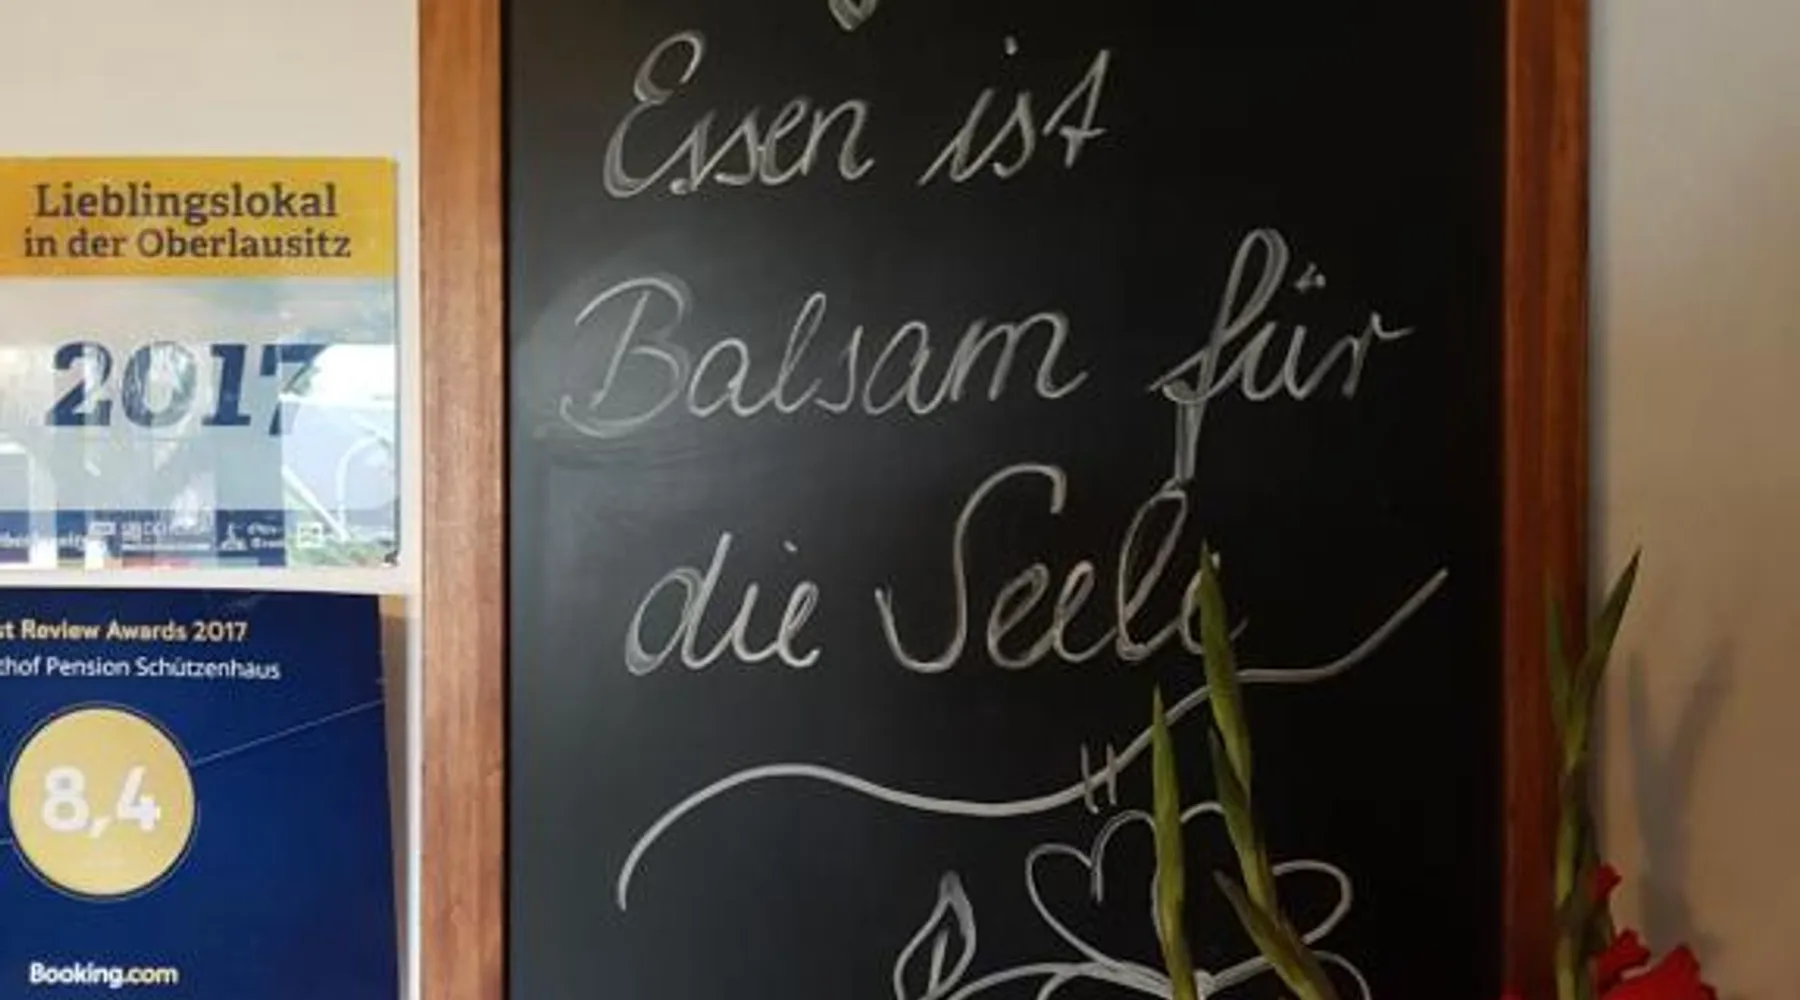 Lieblingslokal
in der Oberlausitz
2017
Review Awards 2017
Pension Schützenhaus
8,4
Booking.com
Essen ist
Balsam für
die Seele